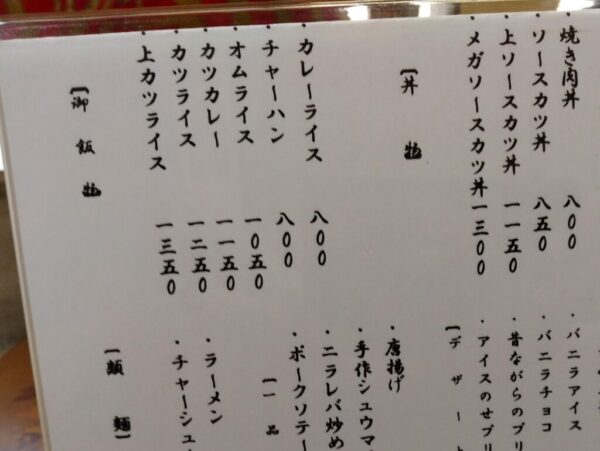 ・焼き肉丼 八00
・ソースカツ丼 八五0
・上ソースカツ丼 一一五0
・メガソースカツ丼 一三00
【丼 物】
・カレーライス 八00
・チャーハン 八00
・オムライス 一0五0
・カツカレー 一一五0
・カツライス 一二五0
・上カツライス 一三五0
【御飯物】
・バニラアイス
・バニラチョコ
・昔ながらのプリ
・アイスのせプリ
【デザート
・唐揚げ
・手作シュウマ
・ニラレバ炒め
・ポークソテー
【一品
・ラーメン
・チャーシュ
【類 麺】